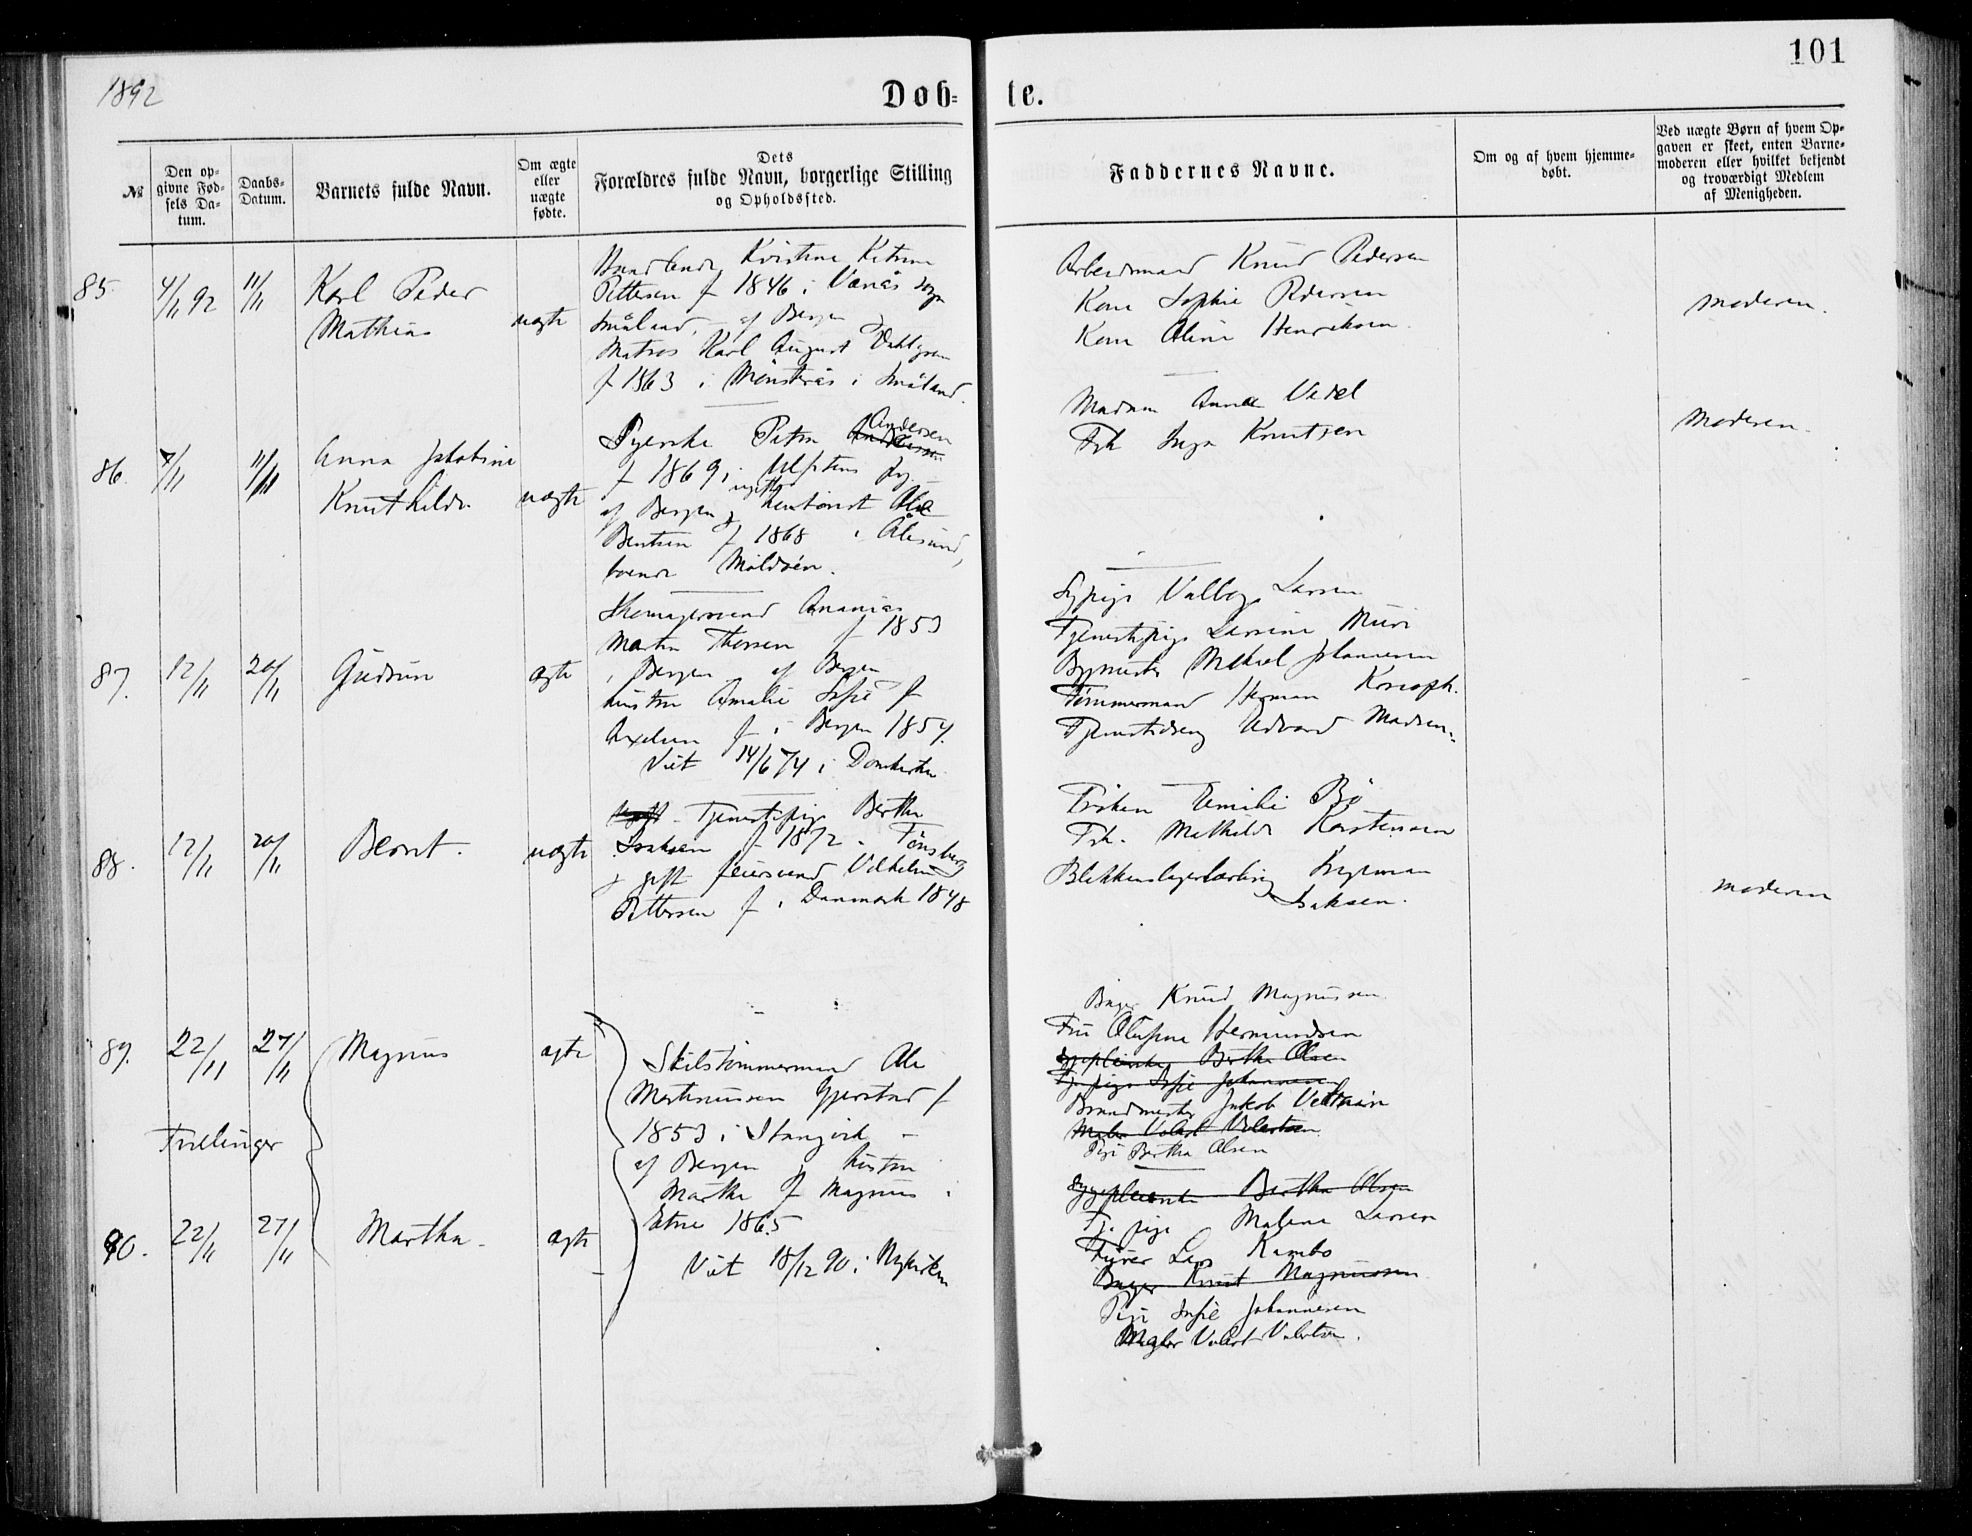 1892
Døb-
te.
101
№
Den op-
givne Fød-
sels Da-
tum.
Daabs-
Datum.
Barnets fulde Navn.
Om ægte
eller
uægte
fødte.
Dets
Forældres fulde Navn, borgerlige Stilling
og Opholdssted.
Faddernes Navne.
Om og af hvem hjemme-
døbt.
Ved uægte Børn af hvem Op-
gaven er skeet, enten Barne-
moderen eller hvilket bekjendt
og troværdigt Medlem
af Menigheden.
85.
4/11 92
11/11
Karl Peder
Mathias
uægte
Kristine
Pettersen f 1846 i
Småland, af Bergen
Matros Karl August Dahlgren
f 1863 i Mönsterås i Småland.
Arbeidsmand Knud Pedersen
Kone Sophie Pedersen
Kone Oline Henriksen
moderen.
86.
11/11
Anna Jakobine
Knuthilde
uægte
Syerske Petra Andersen
f 1869 i
af Bergen
Bentsen f 1868 i Ålesund,
boende Moldøen.
Madam Anna Vedel
Frk Inga Knutsen
Moderen.
87.
12/11
20/11
Gudrun
ægte
Skomagersvend Ananias
Martin Thorsen f 1853
i Bergen af Bergen
hustru Amalie Sofie f
Axelsen f i Bergen 1854.
Viet 14/6 74 i Domkirken
Sypige Valborg Larsen
Tjenestepige Larsine
Mikael Johannesen
Tømmermand Herman
Tjenestedreng Edvard Madsen.
88.
12/11
20/11
Bernt.
uægte
Tjenestepige Bertha
Isaksen f 1872 i Tønsberg
gift feiersvend Vilhelm
Pettersen f i Danmark 1848
Frøken Emilie Bø
Frk. Mathilde Karstensen
Blikkenslagerlærling Ingeman
Isaksen.
moderen
89.
22/11
27/11
Magnus
ægte
Skibstømmermand Ole
Martinussen Gjerstad f
1853 i Stangvik
af Bergen hustru
Martha f Magnus i
Etne 1865
Viet 18/12 90 i Nykirken
Trillinger
Bager Knud Magnussen
Fru Hermundsen
Sygepleierske Bertha Olsen
Tj. pige Sofie Johannesen
Brandmester Jakob
Maler Volert Volertsen
Pige Bertha Olsen
90.
22/11
27/11
Martha
ægte
Sygepleierske Bertha Olsen
Tj. pige Malene Larsen
Fyrer Lars Kambo
Bager Knut Magnussen
Pige Sofie Johannesen
Maler Volert Volertsen.